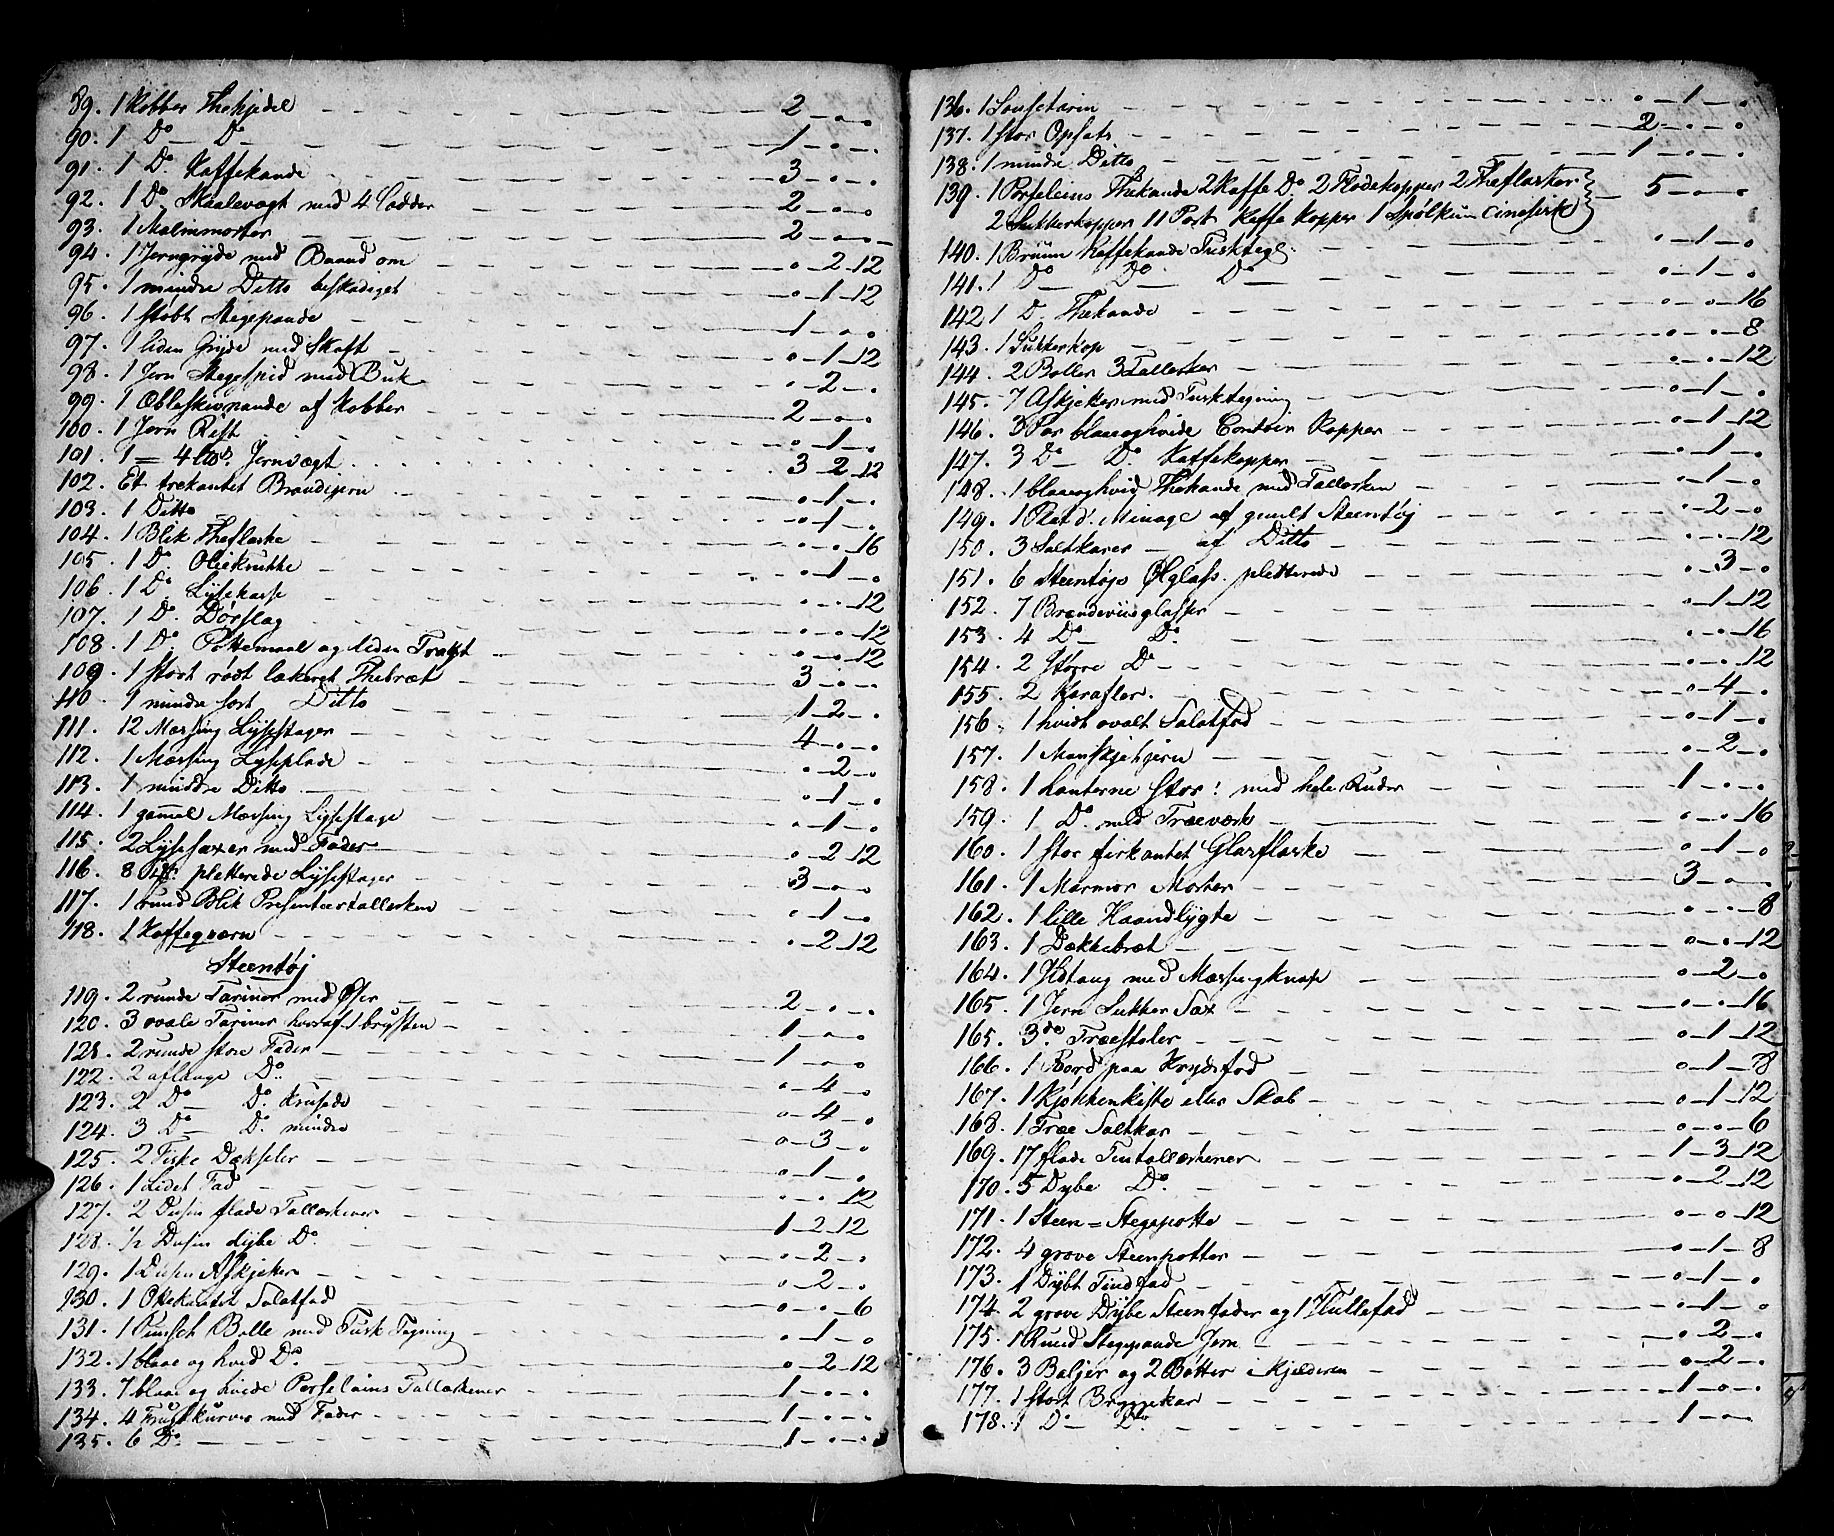 89. 1 Kobber Thekjedel — 2 — " — "
90. 1 Do — Do — 1 — " — "
91. 1 Do Kaffekande — 3 — " — "
92. 1 Do Skaalevægt med 4 Lodder — 2 — " — "
93. 1 Malmmorter — 2 — " — "
94. 1 Jerngryde med Baand om — " — 2 — 12
95. 1 mindre Ditto beskadiget — " — 1 — 12
96. 1 støbt Stegepande — 1 — " — "
97. 1 liden Gryde med Skaft — " — 1 — 12
98. 1 Jern Stegespid med Buk — " — 2 — "
99. 1 Æbleskivpande af Kobber — 2 — " — "
100. 1 Jern Rist — " — 1 — "
101. 1 = 4 Jernvægt — 3 — 2 — 12
102. Et trekantet Brandejern — " — 1 — "
103. 1 Ditto — " — 1 — "
104. 1 Blik Theflaske — " — " — 16
105. 1 Do Oliekrukke — " — 1 — "
106. 1 Do Lysekasse — " — " — 12
107. 1 Do Dørslag — " — " — 12
108. 1 Do Pottemaal og liden Tragt — " — " — 12
109. 1 stort rødt lakeret Thebræt — 3 — " — "
110. 1 mindre sort Ditto — 1 — 2 — "
111. 12 Messing Lysestager — 4 — " — "
112. 1 Messing Lyseplade — " — 2 — "
113. 1 mindre Ditto — " — 1 — "
114. 1 gammel Messing Lysestage — " — 1 — "
115. 2 Lysesaxer med Fader — " — 2 — 12
116. 8 pletterede Lysestager — 3 — " — "
117. 1 rund Blik Presenteertallerken — " — 1 — "
118. 1 Kaffeqværn — " — 2 — 12
Steentøj
119. 2 runde Tariner med Øser — 2 — " — "
120. 3 ovale Tariner hvoraf 1 brysten — 1 — " — "
121. 2 runde store Fader — 1 — " — "
122. 2 aflange Do — " — 4 — "
123. 2 Do — Do Krusede — " — 4 — "
124. 3 Do — Do mindre — " — 3 — "
125. 2 Fiske Dækseler — " — 1 — "
126. 1 Lidet Fad — " — " — 12
127. 2 Dusin flade Tallerkener — 1 — 2 — 12
128. ½ Dusin dybe Do — " — 2 — "
129. 1 Dusin Askjetter — " — 2 — "
130. 1 Ottekantet Salatfad — " — " — 6
131. 1 Punsch Bolle med Tusk Tegning — " — 1 — "
132. 1 blaae og hvid Do — " — 2 — 12
133. 7 blaae og hvide Porseleins Tallerkener — 1 — " — "
134. 4 Frugtkurver med Fader — 1 — " — "
135. 6 Do — 1 — " — "
136. 1 Sousetarin — " — 1 — "
137. 1 stor Opsats — 2 — " — "
138. 1 mindre Ditto — 1 — " — "
139. 1 Porseleins Thekande 2 Kaffe Do 2 Flødekopper 2 Theflasker
2 Sukkerkopper 11 Par Kaffe Kopper 1 Spølkum — 5 — " — "
140. 1 Bruun Kaffekande — " — 1 — "
141. 1 Do — Do — Do — " — 1 — "
142 1 Do Thekande — " — " — 16
143. 1 Sukkerkop — " — " — 8
144. 2 Boller 3 Tallerker — " — " — 12
145. 7 Askjetter med Tusktegning — " — 1 — "
146. 3 Par blaaeoghvide Kopper — " — 1 — 12
147. 3 Do — Do Kaffekopper — " — 1 — "
148. 1 blaaeoghvid Thekande med Tallerken — " — 1 — "
149. 1 Plat d'Minage af guult Steentøj — " — 2 — "
150. 3 Saltkarer — af Ditto — " — " — 12
151. 6 Steentøjs Ølglass. pletterede — " — 3 — "
152. 7 Brændeviinsglasser — " — 1 — 12
153. 4 Do — Do — " — " — 16
154. 2 Større Do — " — " — 12
155. 2 Karafler. — " — 4 — "
156. 1 hvidt ovalt Salatfad — " — 1 — "
157. 1 — " — 2 — "
158. 1 Lanterne stor: med hele Ruder — 1 — " — "
159. 1 Do med Træeværk — " — " — 16
160. 1 stor firkantet Glasflaske — " — 1 — "
161. 1 Marmor Morter — 3 — " — "
162. 1 lille Haandlygte — " — " — 8
163. 1 Dækkebræt — " — " — 12
164. 1 Ildtang med Messingknap — " — 2 — "
165. 1 Jern Sukker Sax — " — " — 16
165. 3de Træestoler — " — 1 — 12
166. 1 Bord paa Krydsfod — " — 1 — 8
167. 1 Kjøkkenkiste eller Skab — " — 1 — 12
168. 1 Træe Saltkar — " — " — 6
169. 17 flade Tintallerkener — 1 — 3 — 12
170. 5 Dybe Do — " — 2 — 12
171. 1 Steen = Stegepotte — " — " — 12
172. 4 grove Steenpotter — " — 1 — 8
173. 1 Dybt Tindfad — " — 1 — "
174 2 grove Dybe Steenfader og 1 — " — 1 — "
175. 1 Rund Stegepande Jern — " — 2 — "
176. 3 Baljer og 2 Bøtter i Kjelderen — " — 2 — "
177. 1 Stort Bryggekar — 1 — " — "
178. 1 Do — Do — 1 — " — "